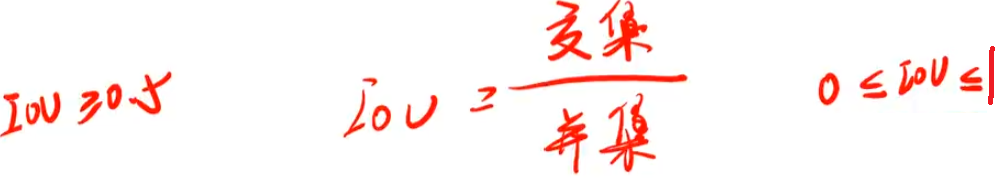 IOU ≥ 0.5
IOU = 交集 / 并集
0 ≤ IOU ≤ 1